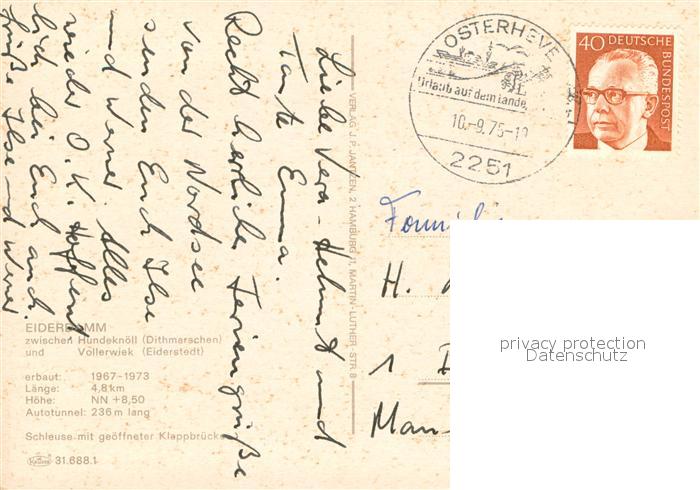 Liebe Vera - Helmut und
Tante Emma.
Recht herzliche Feriengrüße
von der Nordsee
senden Euch Ilse
und Werner. Alles
wieder O.K. Hoffent
lich bei Euch auch.
Grüße Ilse und Werner
EIDERDAMM
zwischen Hundeknöll (Dithmarschen)
und Vollerwiek (Eiderstedt)
erbaut: 1967-1973
Länge: 4,8 km
Höhe: NN +8,50
Autotunnel: 236 m lang
Schleuse mit geöffneter Klappbrücke
Krüger 31.688.1
VERLAG J. P. JANTZEN, 2 HAMBURG 71, MARTIN-LUTHER-STR. 8
OSTERHEVER
Urlaub auf dem Lande
10.-9.75-1
2251
40 DEUTSCHE
BUNDESPOST
Familie
H.
1
Man
privacy protection
Datenschutz